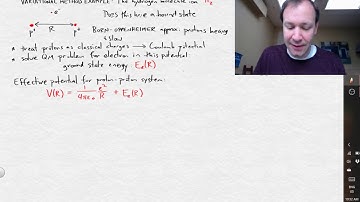 VARIATIONAL METHOD EXAMPLE: The hydrogen molecule ion H₂
· e⁻
Does this have a bound state
p⁺ R p⁺
BORN-OPPENHEIMER approx: protons heavy
& slow
* treat protons as classical charges → Coulomb potential
* solve QM problem for electron in this potential:
ground state energy: Eₑ(R)
Effective potential for proton-proton system:
V(R) = 1/4πε₀ e²/R + Eₑ(R)